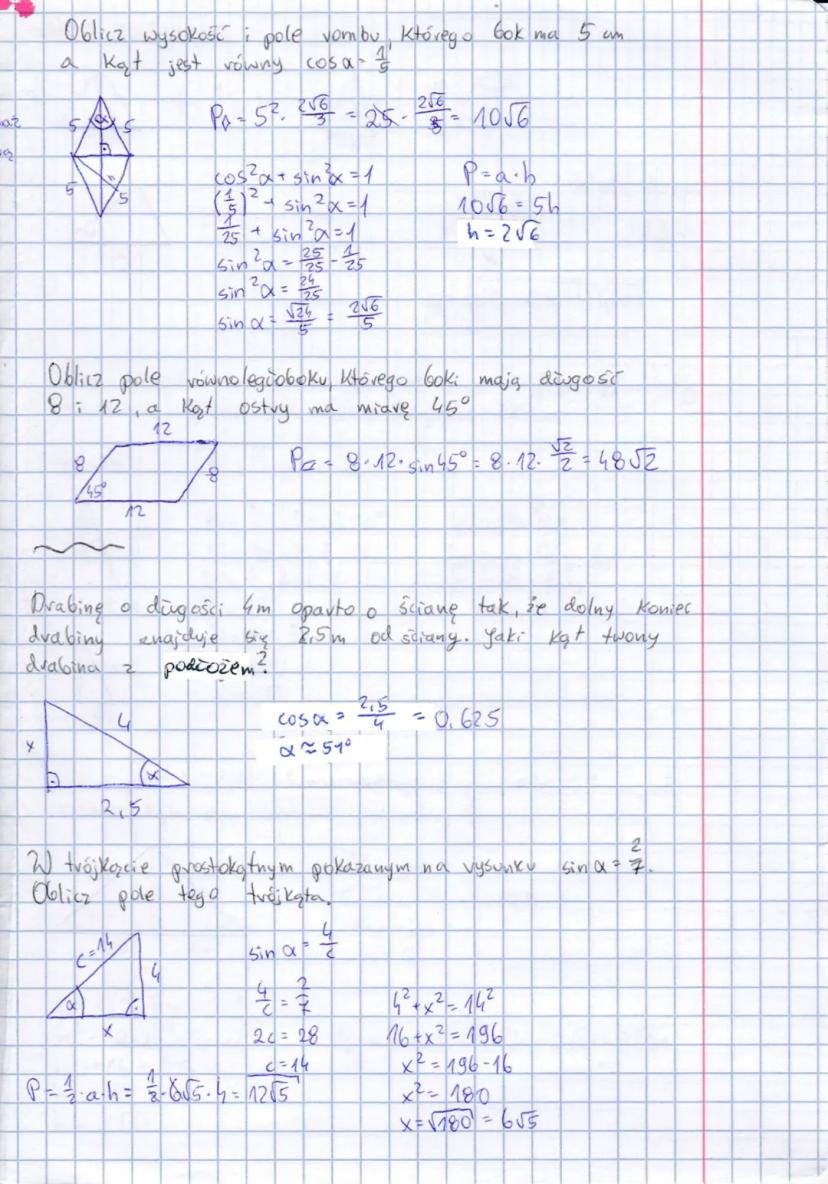 Oblicz wysokość i pole rombu, którego bok ma 5 cm
a kąt jest równy cos α = 1/5
5 α 5
5 h 5
P◊ = 5² · 2√6/5 = 25 · 2√6/5 = 10√6
cos²α + sin²α = 1
(1/5)² + sin²α = 1
1/25 + sin²α = 1
sin²α = 25/25 - 1/25
sin²α = 24/25
sin α = √24/5 = 2√6/5
P = a · h
10√6 = 5h
h = 2√6
Oblicz pole równoległoboku, którego boki mają długość
8 i 12, a kąt ostry ma miarę 45°
12
8 8
45°
12
P▱ = 8 · 12 · sin 45° = 8 · 12 · √2/2 = 48√2
Drabinę o długości 4m oparto o ścianę tak, że dolny koniec
drabiny znajduje się 2,5m od ściany. Jaki kąt tworzy
drabina z podłożem?
x 4 α
2,5
cos α = 2,5/4 = 0,625
α ≈ 51°
W trójkącie prostokątnym pokazanym na rysunku sin α = 2/7.
Oblicz pole tego trójkąta.
c=14
4
α
x
sin α = 4/c
4/c = 2/7
2c = 28
c = 14
4² + x² = 14²
16 + x² = 196
x² = 196 - 16
x² = 180
x = √180 = 6√5
P = 1/2 · a · h = 1/2 · 6√5 · 4 = 12√5